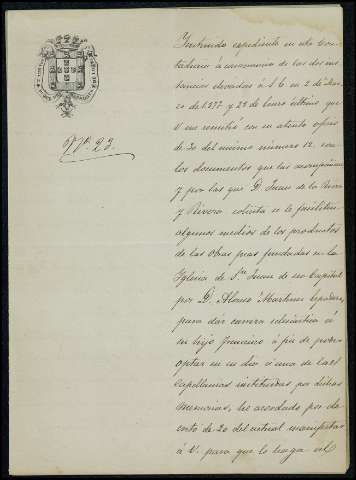 Nº 23.
Instruido expediente en esta Con-
taduria á consecuencia de las dos ins-
tancias elevadas á S. E. en 2 de Mar-
zo de 1877 y 22 de Enero último que
V. me remitió con su atento oficio
de 30 del mismo número 12 con
los documentos que las acompañan
y por las que D. Juan de la
y Rivera solicita se le faciliten
algunos medios de los productos
de las Obras pias fundadas en la
Iglesia de Sn. Juan de esa Capital
por D. Alonso Martinez
para dar carrera eclesiastica á
su hijo Francisco á fin de poder
optar en su dia á una de las
Capellanias instituidas por dichas
Memorias, he acordado por de-
creto de 20 del actual manifestar
á V. para que lo haga al